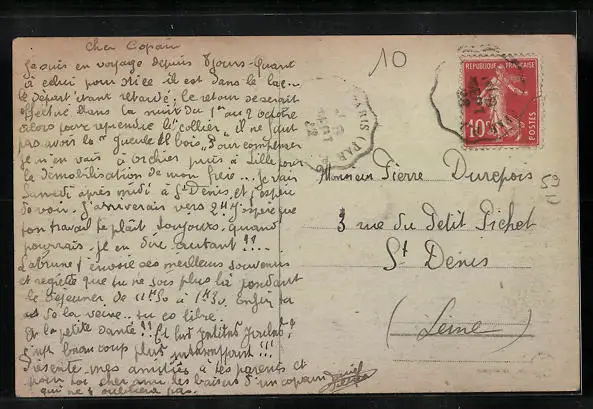 Cher Copain
Je suis en voyage depuis 8 jours. Quant
à celui pour Nice il est dans le lac...
le départ étant retardé, le retour se serait
effectué dans la nuit du 1er au 2 octobre
alors pour reprendre le collier, il ne faut
pas avoir la "gueule de bois". Pour compenser
je m'en vais à Orchies près à Lille pour
la démobilisation de mon frère... Je vais
Samedi après midi à St Denis, et j'espère
te voir. J'arriverais vers
ton travail te plaît toujours, quand
pourrais-je en dire autant!!...
envoie ses meilleurs souvenirs
et regrette que tu ne sois plus là pendant
le déjeuner de 11h30 à 1h30. Enfin tu
as de la veine.. tu es libre.
Et la petite santé!! Et les petites
beaucoup plus !!!
Présente mes amitiés à tes parents et
pour toi cher ami les baisers d'un copain
qui ne t'oubliera pas.
10
RÉPUBLIQUE FRANÇAISE
10c
POSTES
PARIS
Monsieur Pierre Durepois
3 rue du Petit Pichet
St Denis
(Seine)
59